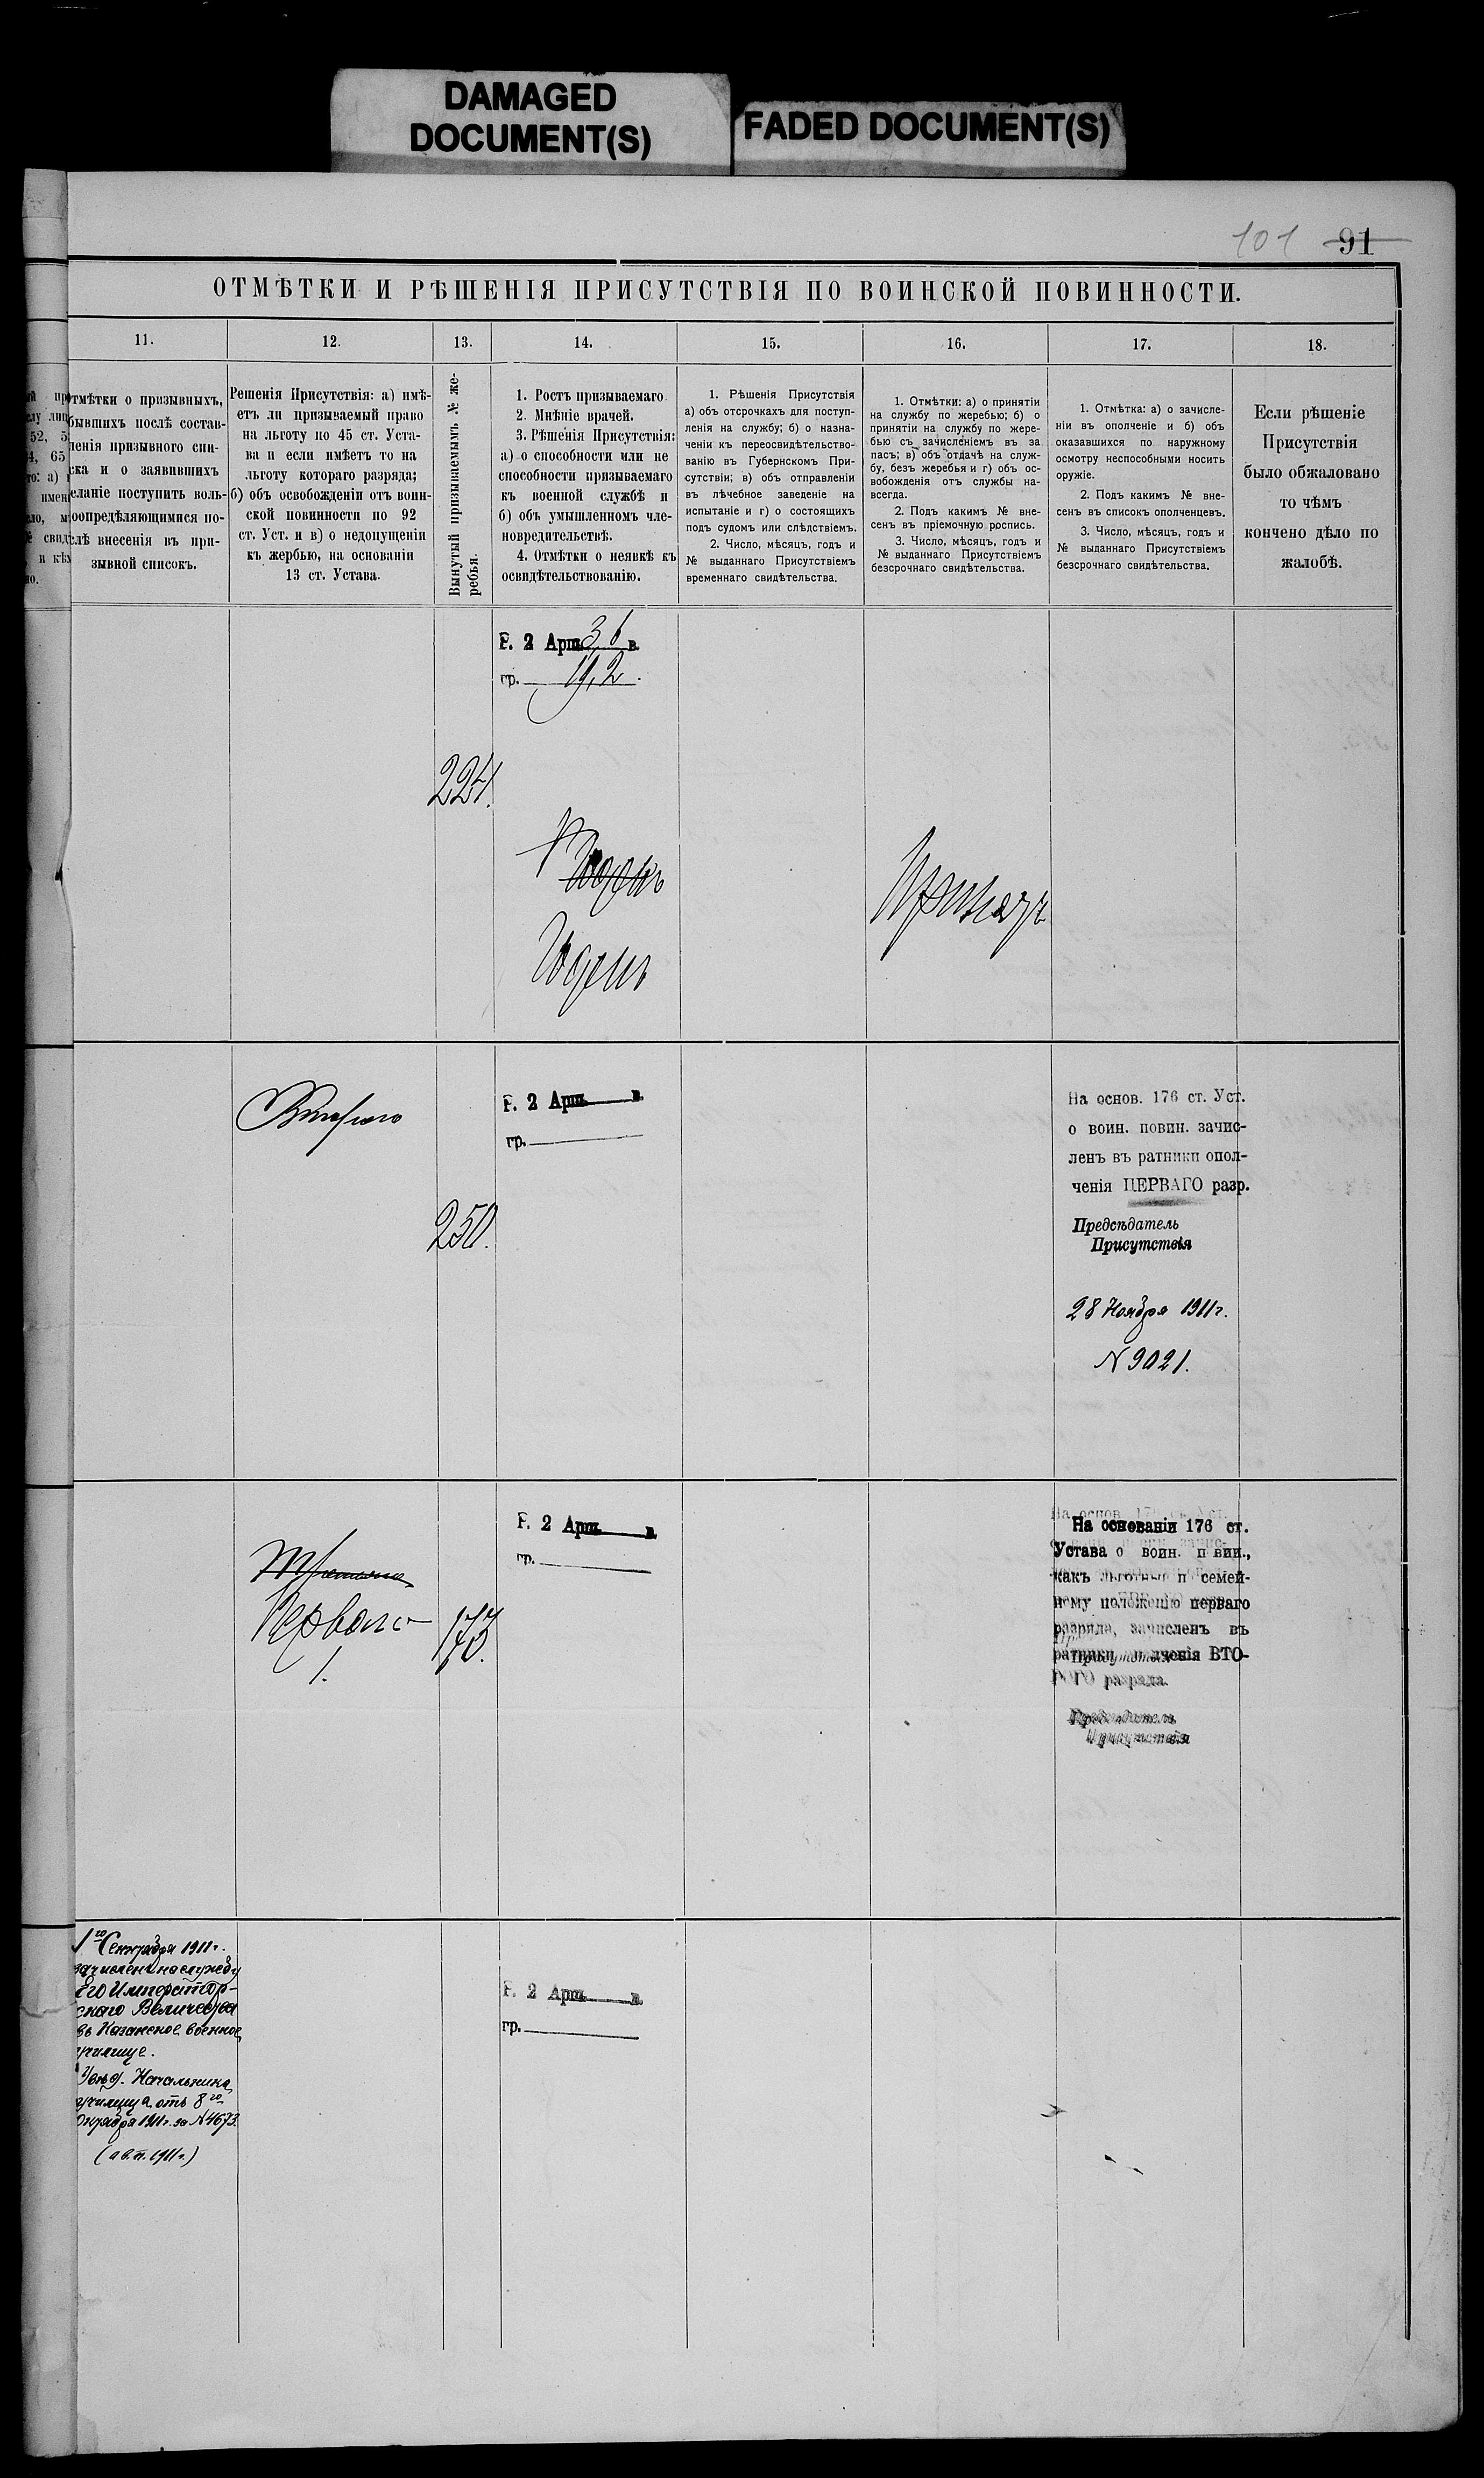 DAMAGED
DOCUMENT(S)
FADED DOCUMENT(S)
101 91
ОТМѢТКИ И РѢШЕНІЯ ПРИСУТСТВІЯ ПО ВОИНСКОЙ ПОВИННОСТИ.
11.
12.
13.
14.
15.
16.
17.
18.
тмѣтки о призывныхъ,
бывшихъ послѣ состав-
ленія призывного спи-
ска и о заявившихъ
еланіе поступить воль-
оопредѣляющимися по-
слѣ внесенія въ при-
зывной списокъ.
Решенія Присутствія: а) имѣ-
етъ ли призываемый право
на льготу по 45 ст. Уста-
ва и если имѣетъ то на
льготу котораго разряда;
б) объ освобожденіи отъ воин-
ской повинности по 92
ст. Уст. и в) о недопущеніи
къ жербью, на основаніи
13 ст. Устава.
Вынутый призываемымъ № же-
ребья.
1. Ростъ призываемаго
2. Мнѣніе врачей.
3. Рѣшенія Присутствія:
а) о способности или не
способности призываемаго
къ военной службѣ и
б) объ умышленномъ чле-
новредительствѣ.
4. Отмѣтки о неявкѣ къ
освидѣтельствованію.
1. Рѣшенія Присутствія
а) объ отсрочкахъ для поступ-
ленія на службу; б) о назна-
ченіи къ переосвидѣтельство-
ванію въ Губернскомъ При-
сутствіи; в) объ отправленіи
въ лѣчебное заведеніе на
испытаніе и г) о состоящихъ
подъ судомъ или слѣдствіемъ.
2. Число, мѣсяцъ, годъ и
№ выданнаго Присутствіемъ
временнаго свидѣтельства.
1. Отмѣтки: а) о принятіи
на службу по жеребью; б) о
принятіи на службу по жере-
бью съ зачисленіемъ въ за
пасъ; в) объ отдачѣ на служ-
бу, безъ жеребья и г) объ ос-
вобожденія отъ службы на-
всегда.
2. Подъ какимъ № вне-
сенъ въ пріемочную роспись.
3. Число, мѣсяцъ, годъ и
№ выданнаго Присутствіемъ
безсрочнаго свидѣтельства.
1. Отмѣтка: а) о зачисле-
ніи въ ополченіе и б) объ
оказавшихся по наружному
осмотру неспособными носить
оружіе.
2. Подъ какимъ № вне-
сенъ въ списокъ ополченцевъ.
3. Число, мѣсяцъ, годъ и
№ выданнаго Присутствіемъ
безсрочнаго свидѣтельства.
Если рѣшеніе
Присутствія
было обжаловано
то чѣмъ
кончено дѣло по
жалобѣ.
Р. 2 Арш. 3,6 в.
гр. 19,2.
224.
Годенъ
Годенъ
Принятъ
Второго
250.
Р. 2 Арш. в.
гр.
На основ. 176 ст. Уст.
о воин. повин. зачис-
ленъ въ ратники опол-
ченія ПЕРВАГО разр.
Предсѣдатель
Присутствія
28 Ноября 1911г.
N 9021.
Третьяго
Перваго
1.
173.
Р. 2 Арш. в.
гр.
На основаніи 176 ст.
Устава о воин. п вин.,
какъ льготный п семей-
ному положенію перваго
разряда, зачисленъ въ
ратники ченія ВТО-
РОГО разряда.
Предсѣдатель
Присутствія
1го Сентября 1911г.
зачисленъ на службу
Его Император-
скаго Величества
въ Казанское военное
училище.
Увѣд. Начальника
училища отъ 8го
Октября 1911г. за N 4673.
Р. 2 Арш. в.
гр.